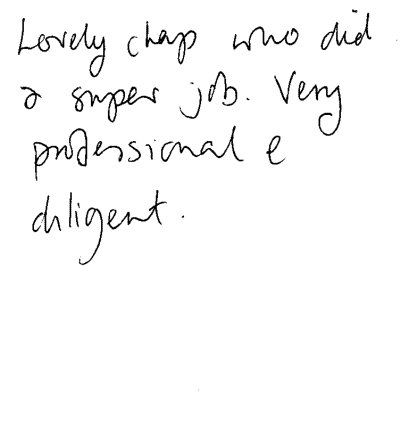 Lovely chap who did
a super job. Very
professional &
diligent.